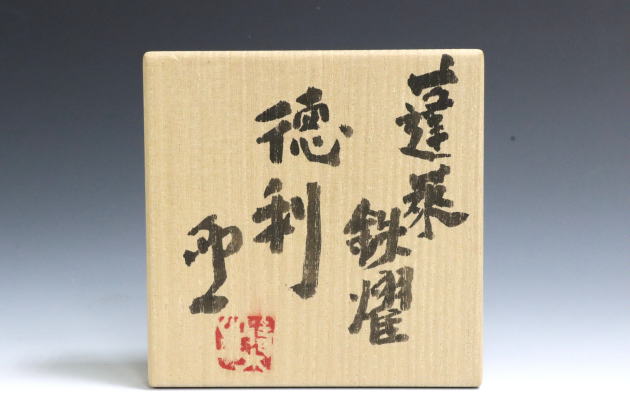 蓬莱
鉄燿
徳利